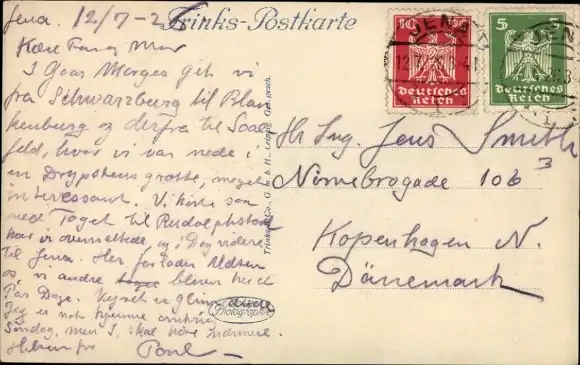 Jena, 12/7-26
Kære Far og Mor
I Gaar Morges gik vi
fra Schwarzburg til Blan-
kenburg og derfra til Saal-
feld, hvor vi var nede i
en Drypstensgrotte, meget
interessant. Vi kørte saa
med Toget til Rudolphstadt
hvor vi overnattede og i Dag videre
til Jena. Her forlader
os, vi andre bliver her et
Par Dage. Vejret er
Jeg er nok hjemme omkring
Søndag, men I skal høre nærmere.
Hilsen fra Poul
Trinks-Postkarte
Trinks & Co., G. m. b. H., Leipzig. Ges. gesch.
Photographie
JENA
10
Deutsches
Reich
5 5
Deutsches
Reich
Hr Ing. Jens Smith
Nørrebrogade 106 3
Kopenhagen N.
Dänemark